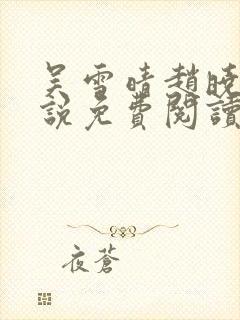 吴雪晴趙曉
說免費閱讀
夜蒼